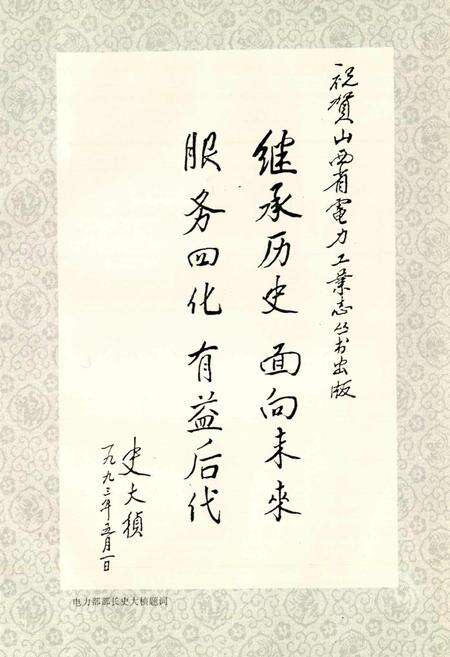 祝贺山西省電力工業志丛书出版
继承历史 面向未来
服务四化 有益后代
史大桢
一九九三年五月一日
电力部部长史大桢题词